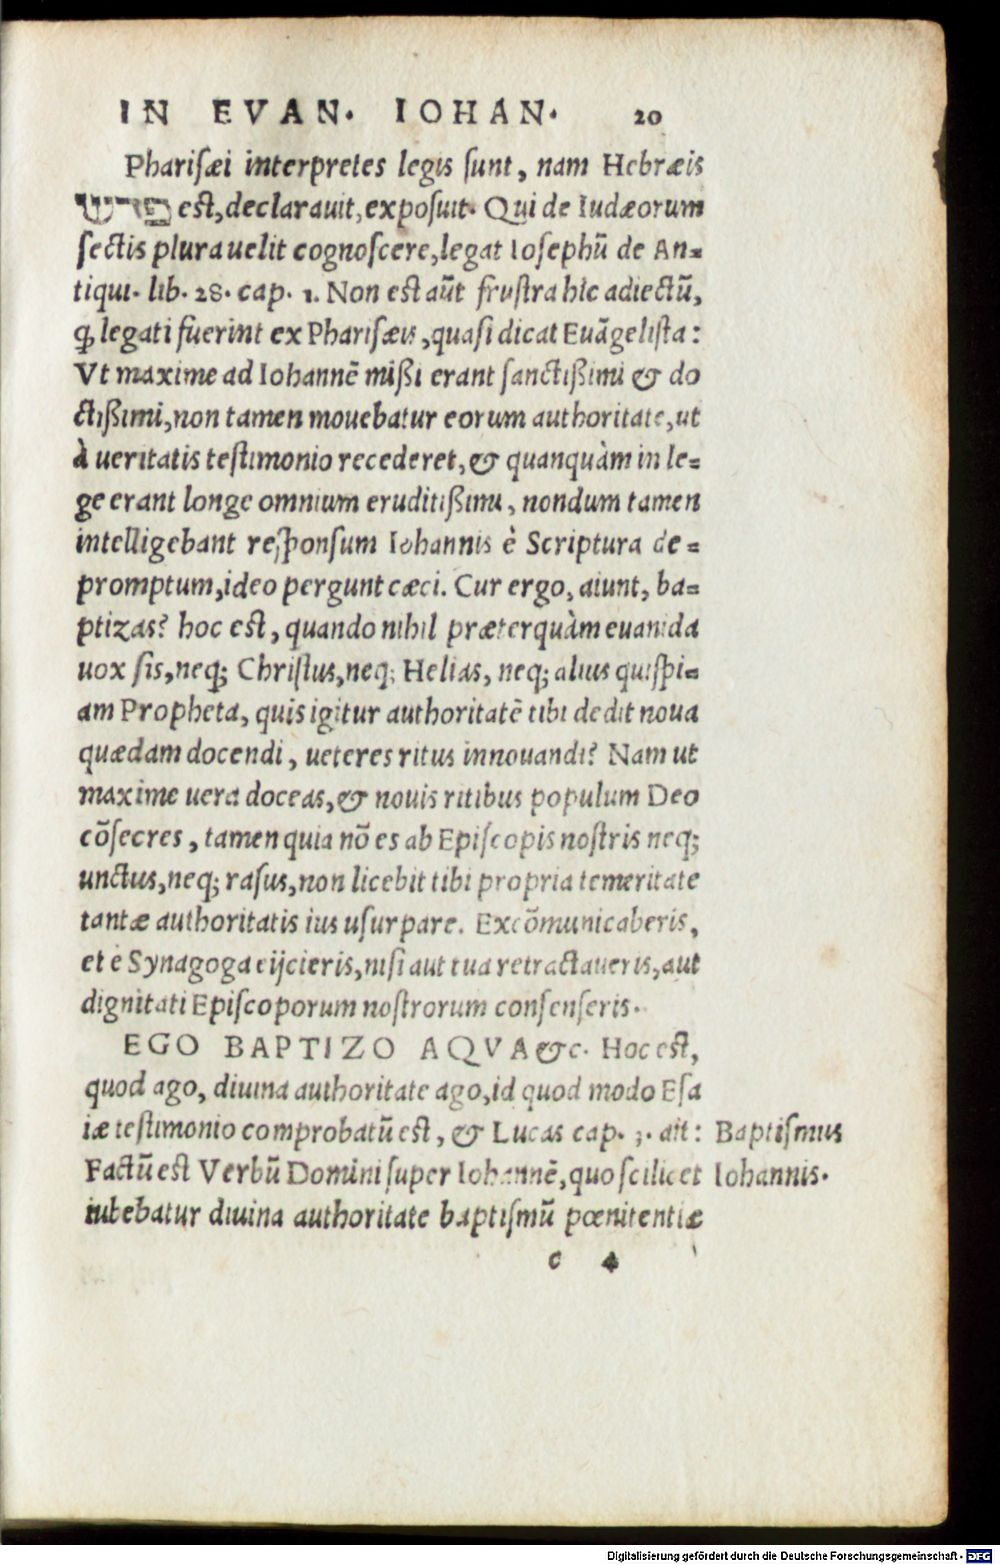 IN EVAN. IOHAN. 20
Pharisæi interpretes legis sunt, nam Hebræis
פירש est, declarauit, exposuit. Qui de Iudæorum
sectis plura uelit cognoscere, legat Iosephū de An=
tiqui. lib. 28. cap. 1. Non est aūt frustra hic adiectū,
ꝙ legati fuerint ex Pharisæis, quasi dicat Euāgelista:
Vt maxime ad Iohannē mißi erant sanctißimi & do
ctißimi, non tamen mouebatur eorum authoritate, ut
à ueritatis testimonio recederet, & quanquàm in le=
ge erant longe omnium eruditißimi, nondum tamen
intelligebant responsum Iohannis è Scriptura de=
promptum, ideo pergunt cæci. Cur ergo, aiunt, ba=
ptizas? hoc est, quando nihil præterquàm euanida
uox sis, neq; Christus, neq; Helias, neq; alius quispi=
am Propheta, quis igitur authoritatē tibi dedit noua
quædam docendi, ueteres ritus innouandi? Nam ut
maxime uera doceas, & nouis ritibus populum Deo
cōsecres, tamen quia nō es ab Episcopis nostris neq;
unctus, neq; rasus, non licebit tibi propria temeritate
tantæ authoritatis ius usurpare. Excōmunicaberis,
et è Synagoga eijcieris, nisi aut tua retractaueris, aut
dignitati Episcoporum nostrorum consenseris.
EGO BAPTIZO AQVA &c. Hoc est,
quod ago, diuina authoritate ago, id quod modo Esa
iæ testimonio comprobatū est, & Lucas cap. 3. ait:
Factū est Verbū Domini super Iohannē, quo scilicet
iubebatur diuina authoritate baptismū pœnitentiæ
Baptismus
Iohannis.
c 4
Digitalisierung gefördert durch die Deutsche Forschungsgemeinschaft - DFG